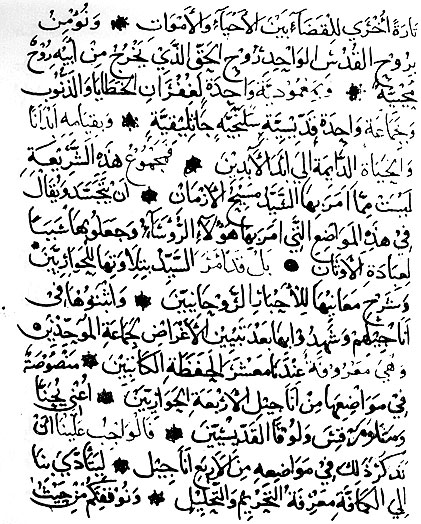 تارة اخرى للقضاء بين الأحياء والأموات ✸ ونؤمن
بروح القدس الواحد روح الحق الذي يخرج من ابيه روح
محيية ✸ وبمعمودية واحدة لغفران الخطايا والذنوب
وجماعة واحدة قديسية سليحية جاثليقية ✸ وبقيامة ابداننا
والحياة الدائمة الى ابد الابدين ✸ مجموع هذه الشريعة
ليست مما امر بها السيد مسيح الأزمان ✸ ان يجتهد ويقال
في هذه المواضع التي امر بها هؤلاء الرؤساء وجعلوها عيبا
لعبادة الاوثان ● بل قد امر السيد بتلاوتها للحجازيين
وشرح معانيها للأحبار الروحانيين ✸ واثبتوها في
اناجيلهم وشهدوا بها بعد تبيين الأغراض لجماعة الموحدين
وهي معروفة عندنا معشر الحفظة الكاتبين ✸ منصوصة
في مواضعها من اناجيل الاربعة الحواريين ✸ اعني يحنا
ومتى ومرقش ولوقا القديسيين ✸ فالواجب علينا ان
نذكر ذلك في مواضعه من الاربع اناجيل ✸ ليتأدى بنا
الى الكافة معرفة التحريم والتحليل ✸ ونوقفكم من حيث